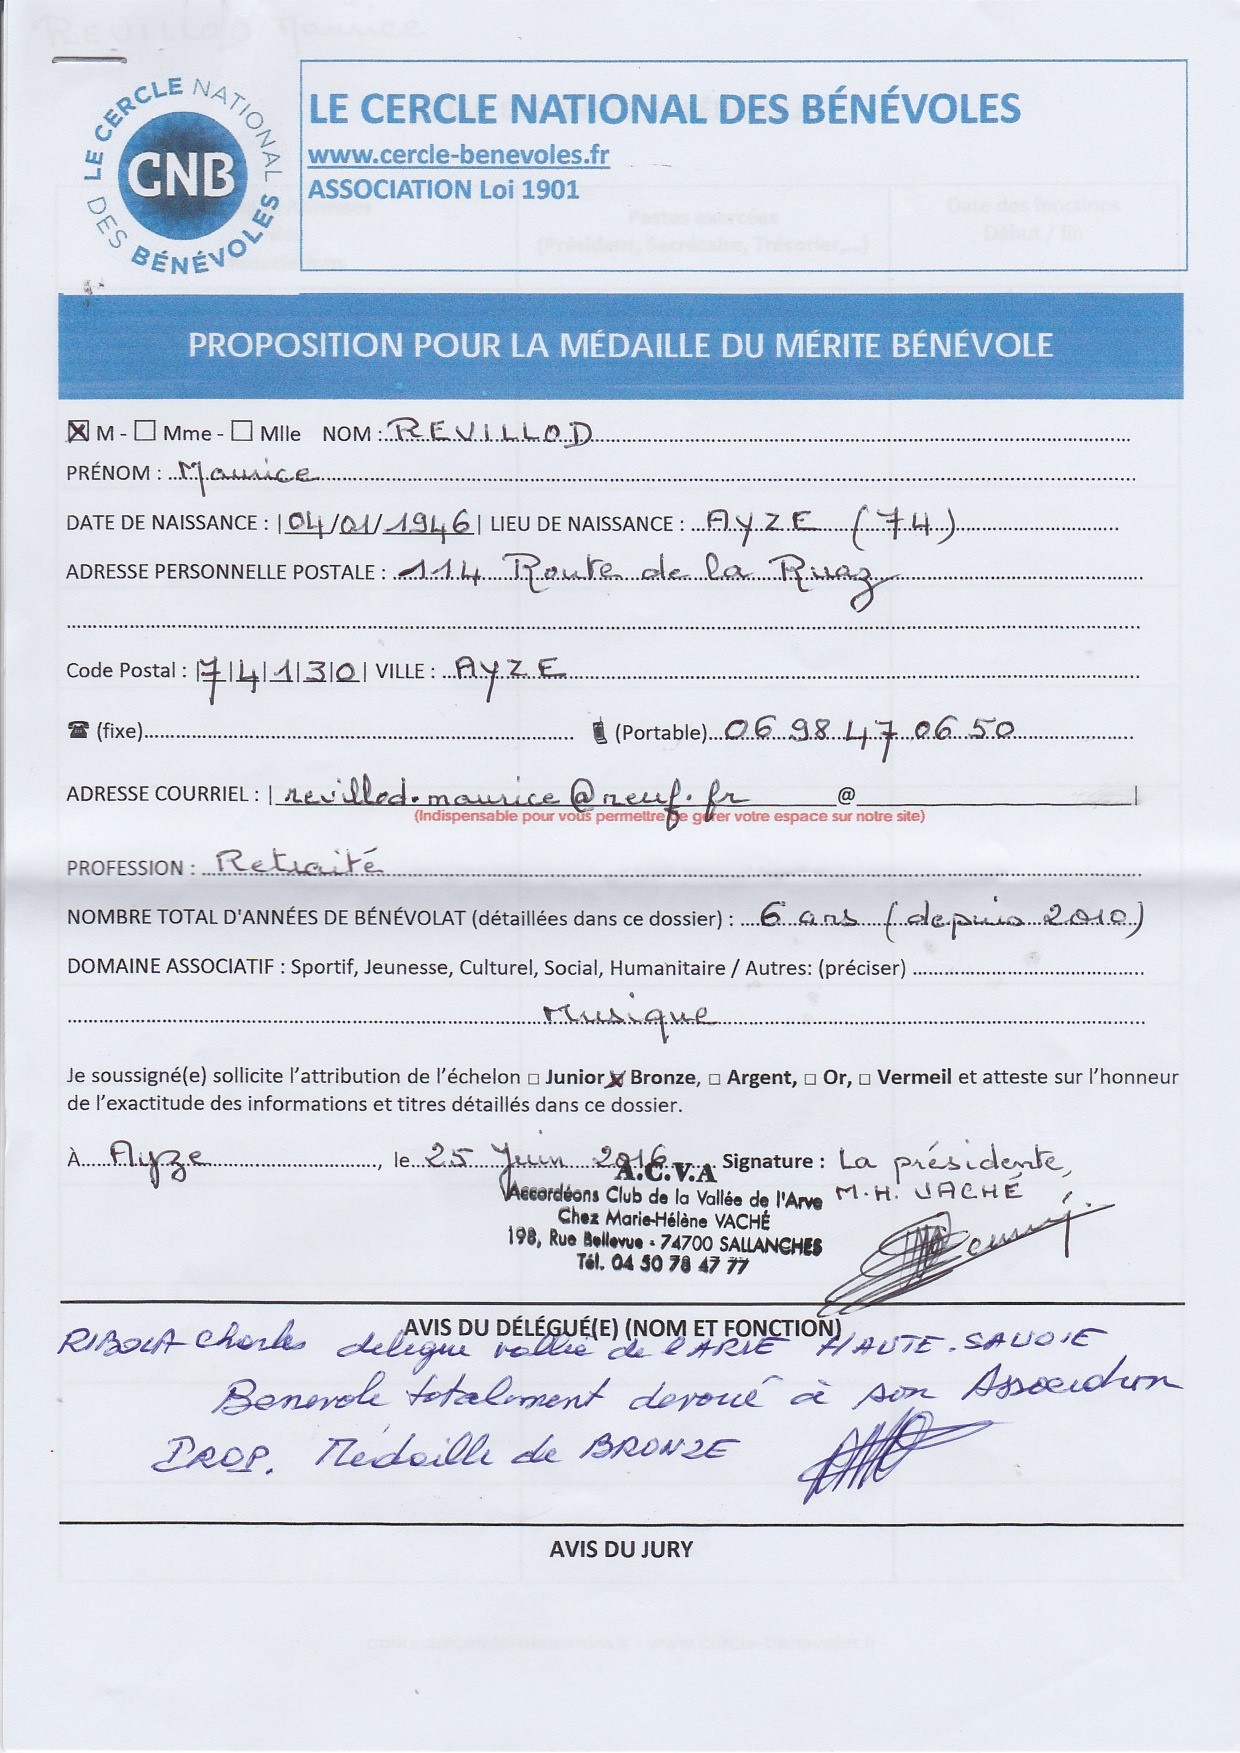 LE CERCLE NATIONAL DES BÉNÉVOLES
CNB
LE CERCLE NATIONAL DES BÉNÉVOLES
www.cercle-benevoles.fr
ASSOCIATION Loi 1901
PROPOSITION POUR LA MÉDAILLE DU MÉRITE BÉNÉVOLE
☒ M - ☐ Mme - ☐ Mlle NOM : REVILLOD
PRÉNOM : Maurice
DATE DE NAISSANCE : |04/01/1946| LIEU DE NAISSANCE : AYZE (74)
ADRESSE PERSONNELLE POSTALE : 114 Route de la Ruaz
Code Postal : |7|4|1|3|0| VILLE : AYZE
☎ (fixe) (Portable) 06 98 47 06 50
ADRESSE COURRIEL : | revillod.maurice@neuf.fr @ |
(Indispensable pour vous permettre de gérer votre espace sur notre site)
PROFESSION : Retraité
NOMBRE TOTAL D'ANNÉES DE BÉNÉVOLAT (détaillées dans ce dossier) : 6 ans (depuis 2010)
DOMAINE ASSOCIATIF : Sportif, Jeunesse, Culturel, Social, Humanitaire / Autres: (préciser)
Musique
Je soussigné(e) sollicite l'attribution de l'échelon ☐ Junior ☒ Bronze, ☐ Argent, ☐ Or, ☐ Vermeil et atteste sur l'honneur
de l'exactitude des informations et titres détaillés dans ce dossier.
À Ayze, le 25 Juin 2016 Signature : La présidente,
M.H. VACHÉ
A.C.V.A
Accordéons Club de la Vallée de l'Arve
Chez Marie-Hélène VACHÉ
198, Rue Bellevue - 74700 SALLANCHES
Tél. 04 50 78 47 77
AVIS DU DÉLÉGUÉ(E) (NOM ET FONCTION)
RIBOLA Charles délégué vallée de l'ARVE HAUTE-SAVOIE
Benevole totalement devoué à son Association
PROP. Médaille de BRONZE
AVIS DU JURY